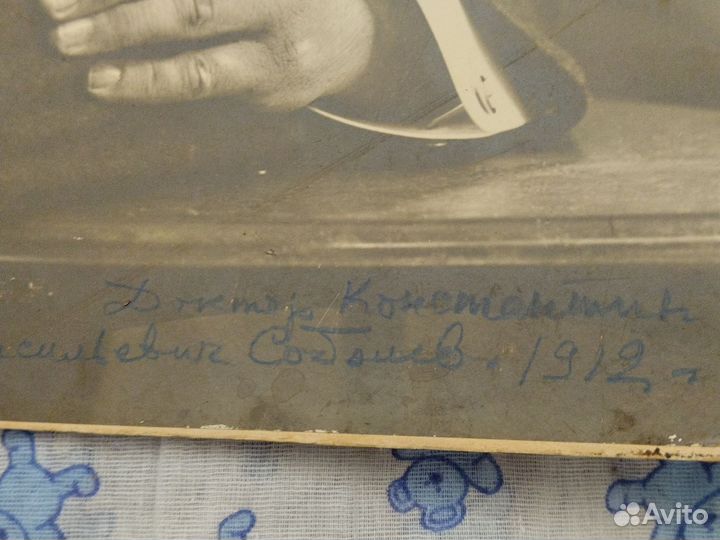 Доктор Константин
сильевич Соболев. 1912 г.
Avito